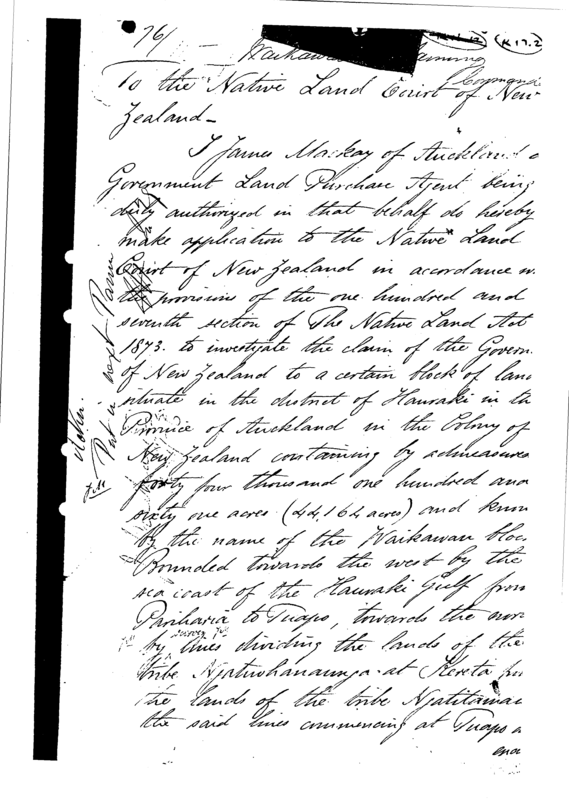 76/
(K 17.2)
To the Native Land Court of New
Zealand -
I James Mackay of Auckland a
Government Land Purchase Agent being
duly authorized in that behalf do hereby
make application to the Native Land
Court of New Zealand in accordance w
the provisions of the one hundred and
seventh section of The Native Land Act
1873. to investigate the claim of the Govern
of New Zealand to a certain block of land
situate in the district of Hauraki in the
Province of Auckland in the Colony of
New Zealand containing by admeasure
forty four thousand one hundred and
sixty one acres (44,164 acres) and known
by the name of the Waikawau bloc
Bounded towards the west by the
sea coast of the Hauraki Gulf from
to Tuapo, towards the nor
survey
by lines dividing the lands of the
tribe Ngatiwhanaunga at Kereta from
the lands of the tribe Ngatitamat
the said lines commencing at Tuapo a
Put in next